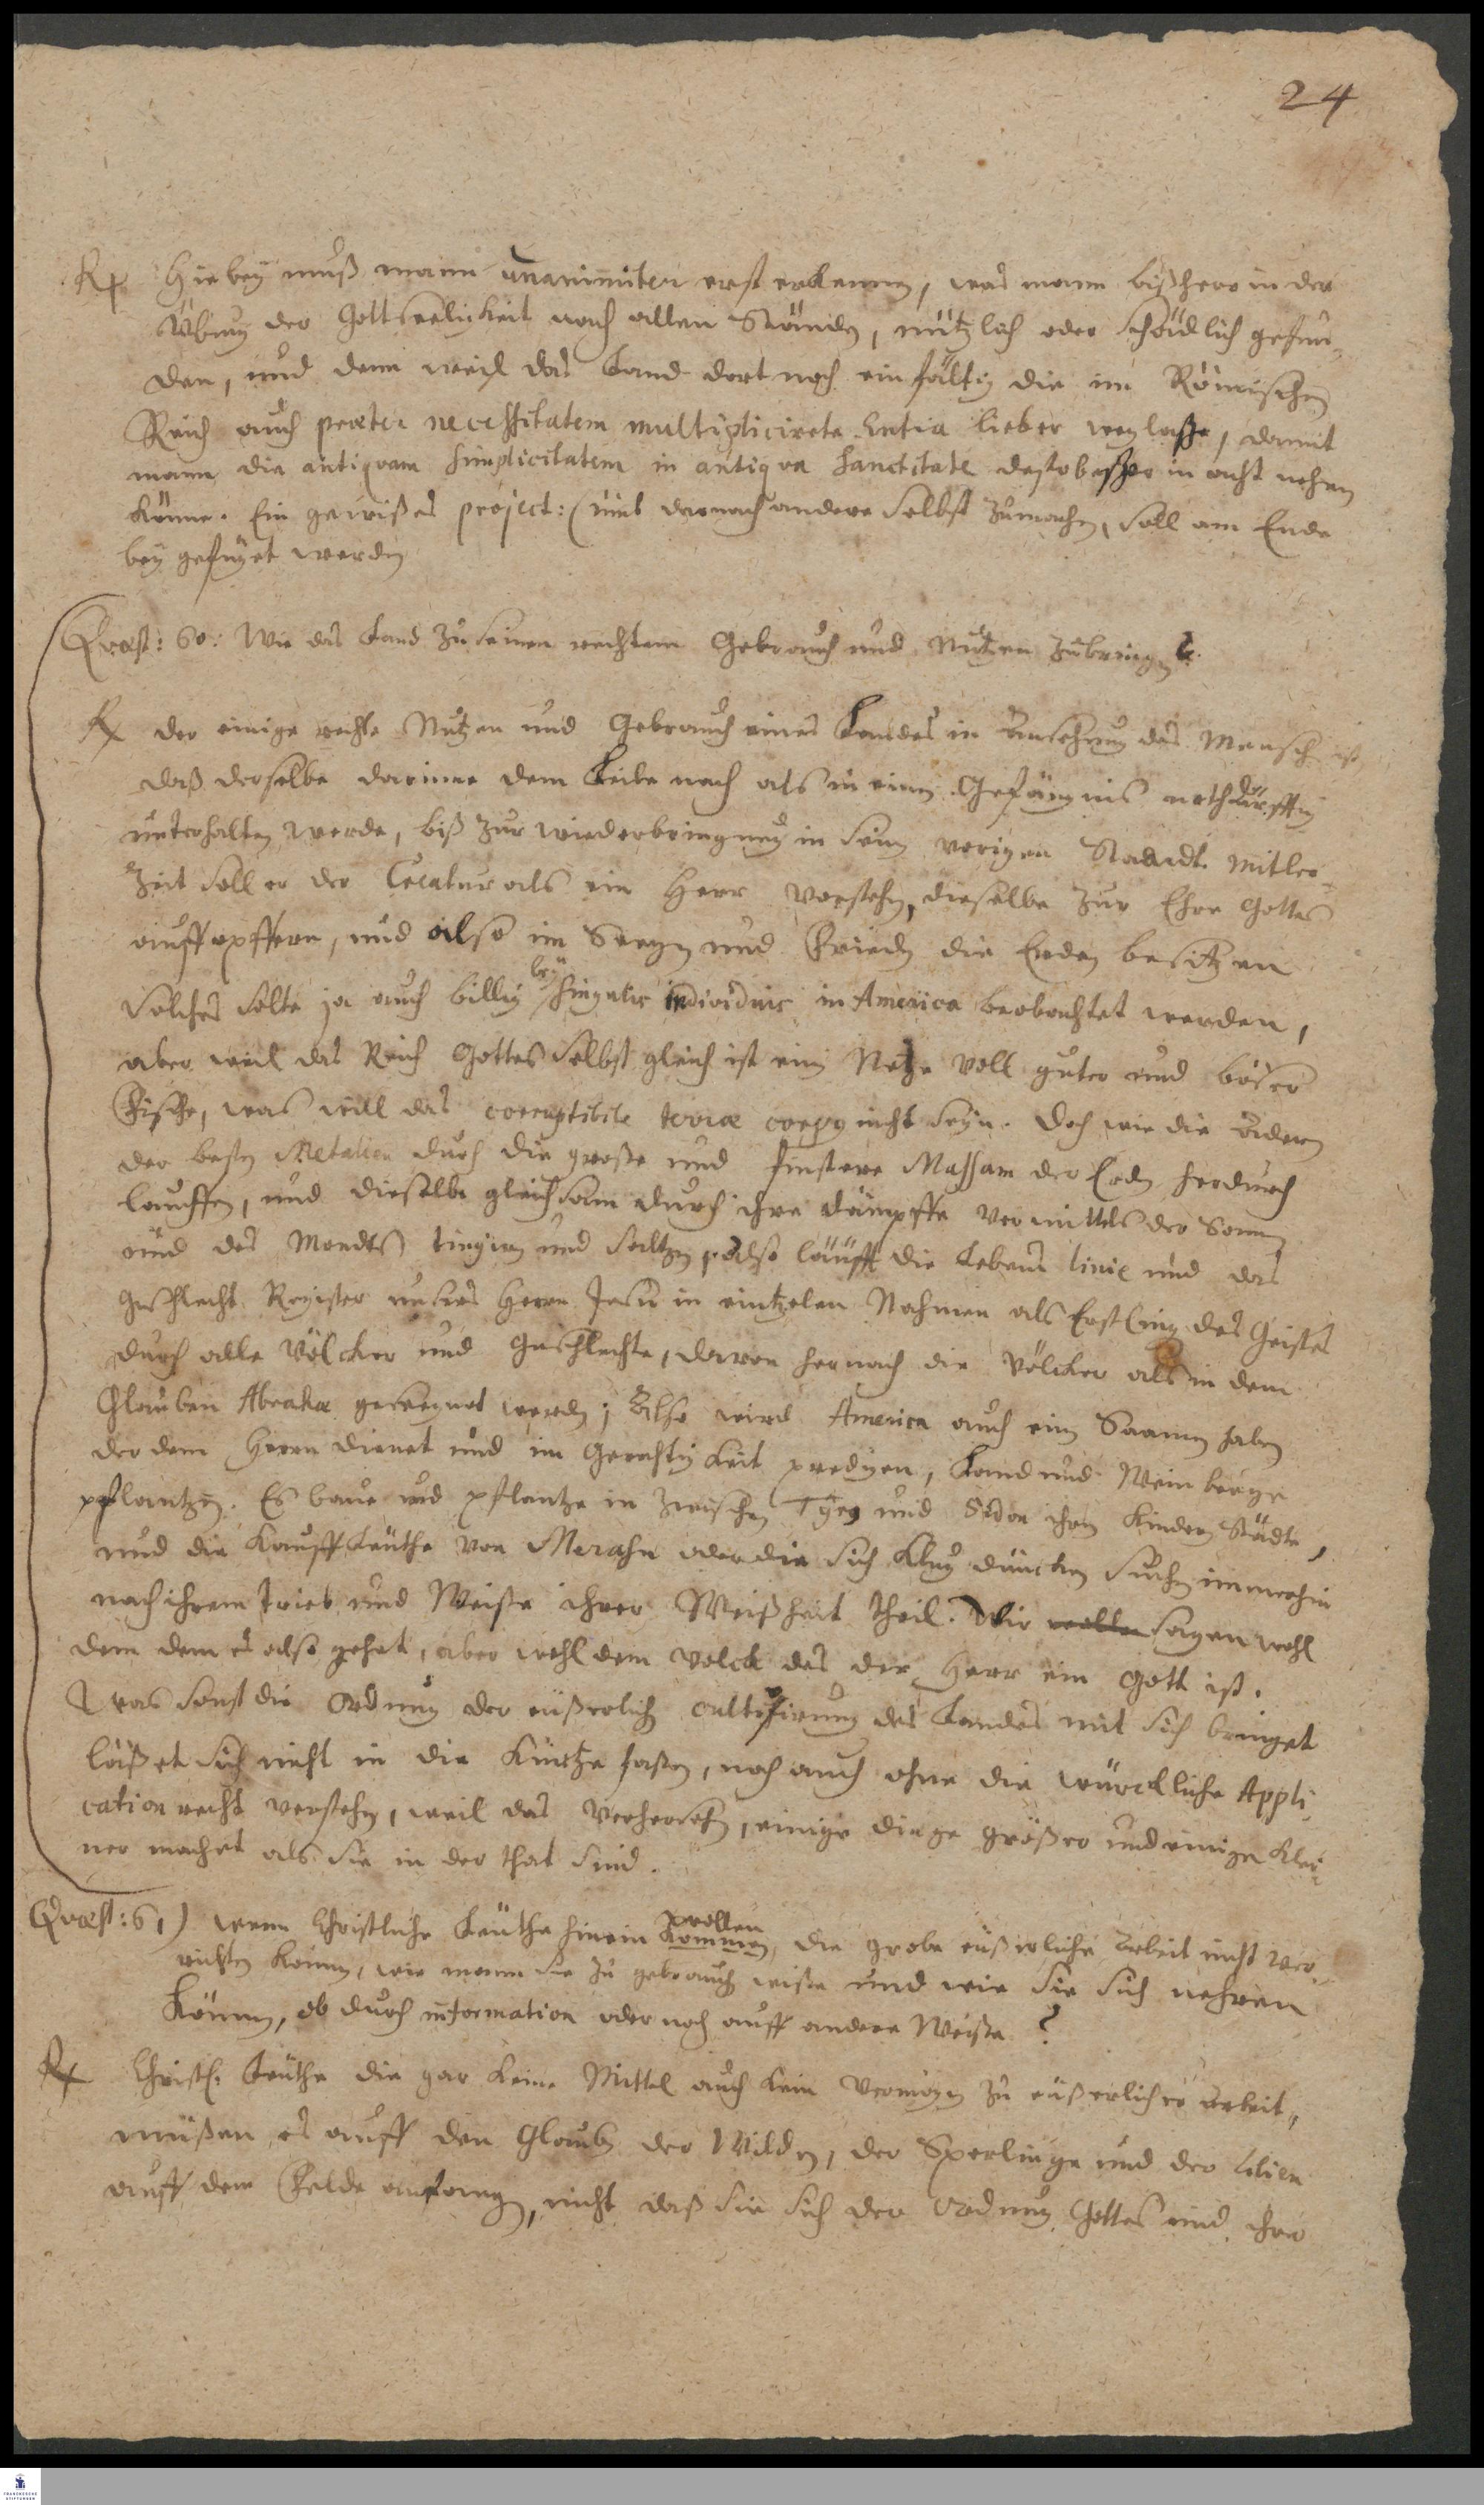 24
Rx Hiebey muß mann unanimiter erst erkennen, was mann bißhero in der
Übung der Gottseelickeit nach allen Ständen, nützlich oder schädlich gefun-
den, und dann weil das Land dort noch einfältig die im Römischen
Reich auch praeter necessitatem multiplicirete Entia lieber weglaßen, damit
mann die antiqvam simplicitatem in antiqva sanctitate desto beßer in acht nehmen
könne. Ein gewißes project: (umb darnach andere selbst zumachen, soll am Ende
bey gefüget werden
Qvæst: 60: Wie das Land zu seinen rechtem Gebrauch und Nutzen zubringen?
Rx der einige rechte Nutzen und Gebrauch eines Landes in Ansehung des Menschen ist
daß derselbe darinne dem Leibe nach als in einem Gefängnis nothdürfftig
unterhalten werde, biß zur wiederbringung in seinen vorigen Standt. Mitler-
Zeit soll er der Creatur als ein Herr vorstehen, dieselbe zur Ehre Gottes
auffopffern, und also im Seegen und Frieden die Erden besitzen
solches solte ja auch billig bey singulis individuis in America beobachtet werden,
aber weil das Reich Gottes selbst gleich ist ein Netze voll guter und böser
Fische, was will das corruptibile terræ corpus nicht seyn. Doch wie die Adern
der besten Metallen durch die große und finstere Massam der Erden herdurch
lauffen, und dieselbe gleichsam durch ihre dämpffe vermittels der Sonnen
und des Mondes tingiren und saltzen, also läufft die Lebens linie und das
Geschlecht Register unsers Herrn Jesu in eintzelen Nahmen als Erstling des Geistes
durch alle Völcker und Geschlechte, davon hernach die Völcker als in dem
Glauben Abrahæ gesegnet werden; Also wird America auch ein Saamen haben
der dem Herrn dienet und im Gerechtigkeit predigen, Land und Weinberge
pflantzen. Es baue und pflantze in zwischen Tyrus und Sidon ihren Kindern Städte,
und die Kauff Leuthe von Merahn oder die sich klug duncken suchen immerhin
nach ihrem Trieb und Weise ihrer Weißheit theil. Wir wollen sagen wohl
dem dem es also gehet, aber wohl dem Volck des der Herr ein Gott ist.
Was sonst die Ordnung der eußerlichen cultifirung des Landes mit sich bringet
läßet sich nicht in die Kürtze faßen, noch auch ohne die würckliche Appli-
cation recht verstehen, weil das Vorhersehen, einige dinge größer und einige klei-
ner machet als sie in der that sind.
Qvæst: 61) wenn Christliche Leuthe hinein kommen wollen, die grobe eußerliche Arbeit nicht ver-
richten können, wie mann sie zu gebrauchen wiße und wie sie sich nehren
Können, ob durch information oder noch auff andere Weiße?
Rx Christl. Leuthe die gar keine Mittel auch kein Vermögen zu eußerlicher Arbeit,
müßen es auff den Glauben der Wilden, der Sperlinge und der Lilien
auff dem Felde anfangen, nicht daß sie sich der Ordnung Gottes und ihrer
FRANCKESCHE
STIFTUNGEN